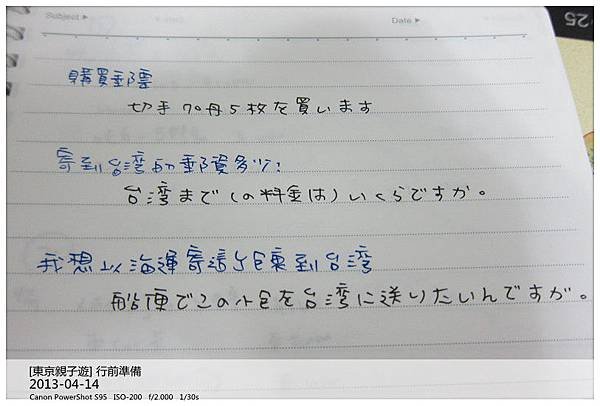 Subject ▸ Date ▸
25
購買郵票
切手70円5枚を買います
寄到台湾的郵資多少?
台湾まで(の料金は)いくらですか。
我想以海運寄這小包裹到台湾
船便でこの小包を台湾に送りたいんですが。
[東京親子遊] 行前準備
2013-04-14
Canon PowerShot S95 ISO-200 f/2.000 1/30s